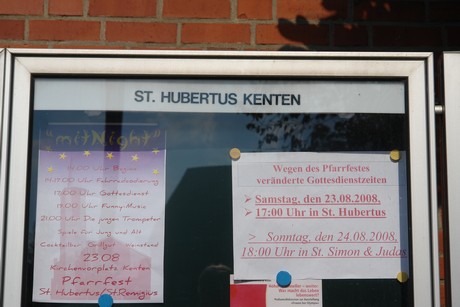 ST. HUBERTUS KENTEN
"mitNight"
17:00 Uhr Gottesdienst
19:00 Uhr Funny-Music
21:00 Uhr Die jungen Trompeter
Spiele für Jung und Alt
Cocktailbar Grillgut
23.08
Kirchenvorplatz Kenten
Pfarrfest
St. Hubertus/St.Remigius
Wegen des Pfarrfestes
veränderte Gottesdienstzeiten
➢ Samstag, den 23.08.2008,
➢ 17:00 Uhr in St. Hubertus
> Sonntag, den 24.08.2008,
18:00 Uhr in St. Simon & Judas